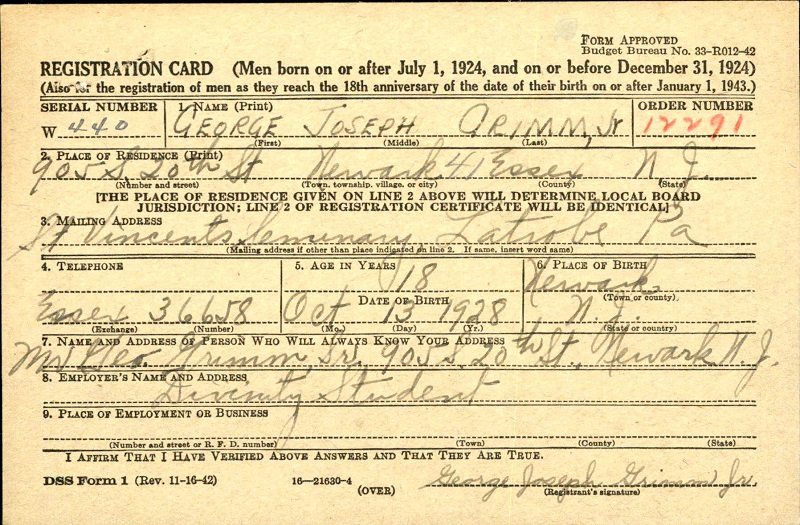 FORM APPROVED
Budget Bureau No. 33-R012-42
REGISTRATION CARD (Men born on or after July 1, 1924, and on or before December 31, 1924)
(Also for the registration of men as they reach the 18th anniversary of the date of their birth on or after January 1, 1943.)
SERIAL NUMBER 1. NAME (Print) ORDER NUMBER
W 440 GEORGE JOSEPH GRIMM, Jr 12291
(First) (Middle) (Last)
2. PLACE OF RESIDENCE (Print)
905 S. 20th St Newark 41 Essex N J.
(Number and street) (Town, township, village, or city) (County) (State)
[THE PLACE OF RESIDENCE GIVEN ON LINE 2 ABOVE WILL DETERMINE LOCAL BOARD
JURISDICTION; LINE 2 OF REGISTRATION CERTIFICATE WILL BE IDENTICAL]
3. MAILING ADDRESS
St Vincents Seminary Latrobe Pa
(Mailing address if other than place indicated on line 2. If same, insert word same)
4. TELEPHONE 5. AGE IN YEARS 6. PLACE OF BIRTH
18 Newark
(Town or county)
DATE OF BIRTH
Essex 36658 Oct 13 1928 N. J.
(Exchange) (Number) (Mo.) (Day) (Yr.) (State or country)
7. NAME AND ADDRESS OF PERSON WHO WILL ALWAYS KNOW YOUR ADDRESS
Geo. Grimm, Sr. 905 S. 20th St., Newark N. J.
8. EMPLOYER'S NAME AND ADDRESS
Divinity Student
9. PLACE OF EMPLOYMENT OR BUSINESS
(Number and street or R. F. D. number) (Town) (County) (State)
I AFFIRM THAT I HAVE VERIFIED ABOVE ANSWERS AND THAT THEY ARE TRUE.
DSS Form 1 (Rev. 11-16-42) 16—21630-4 George Joseph Grimm Jr.
(OVER) (Registrant's signature)